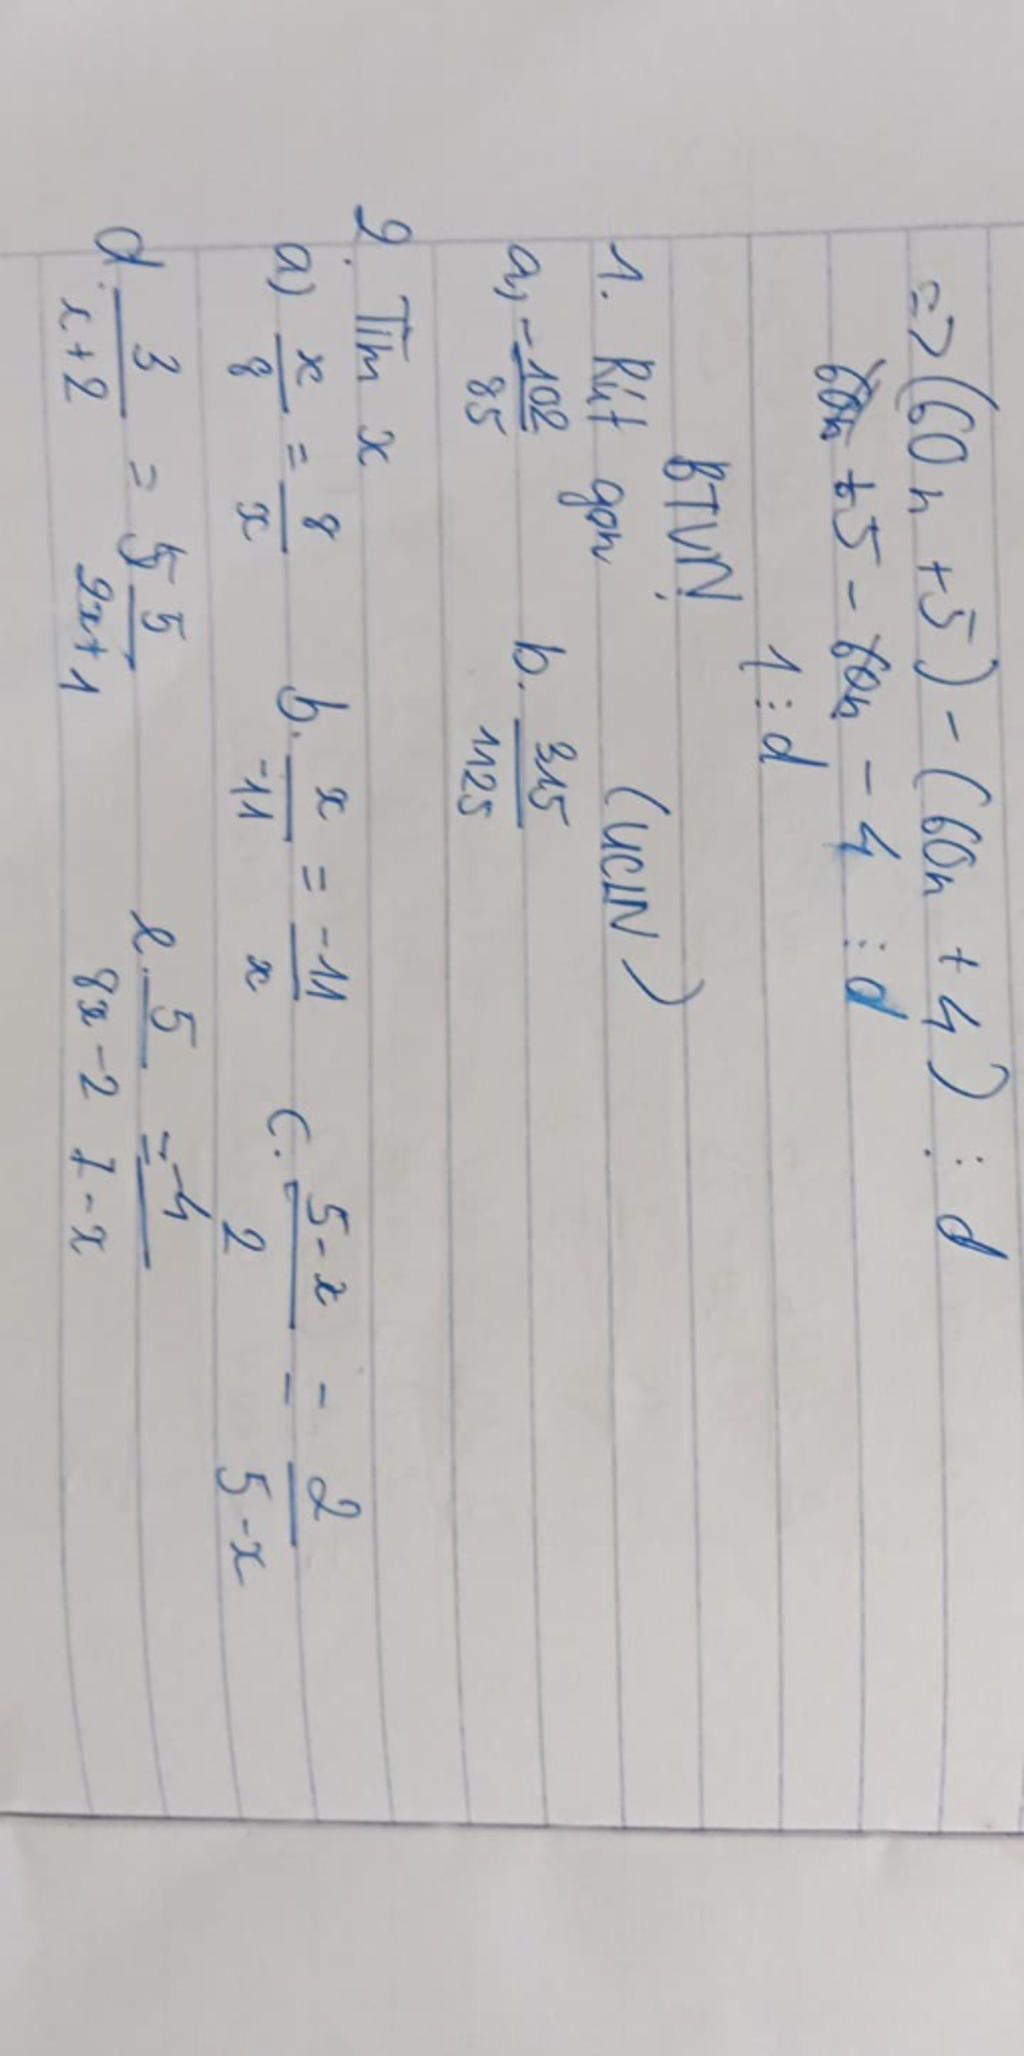 => (60n + 5) - (60n + 4) ⋮ d
60n + 5 - 60n - 4 ⋮ d
1 ⋮ d
BTVN:
1. Rút gọn (ƯCLN)
a, -102/85 b. 315/1125
2. Tìm x
a) x/8 = 8/x b. x/-11 = -11/x c. 5-x/2 = 2/5-x
d. 3/x+2 = 5/2x+1 e. 5/8x-2 = -4/7-x